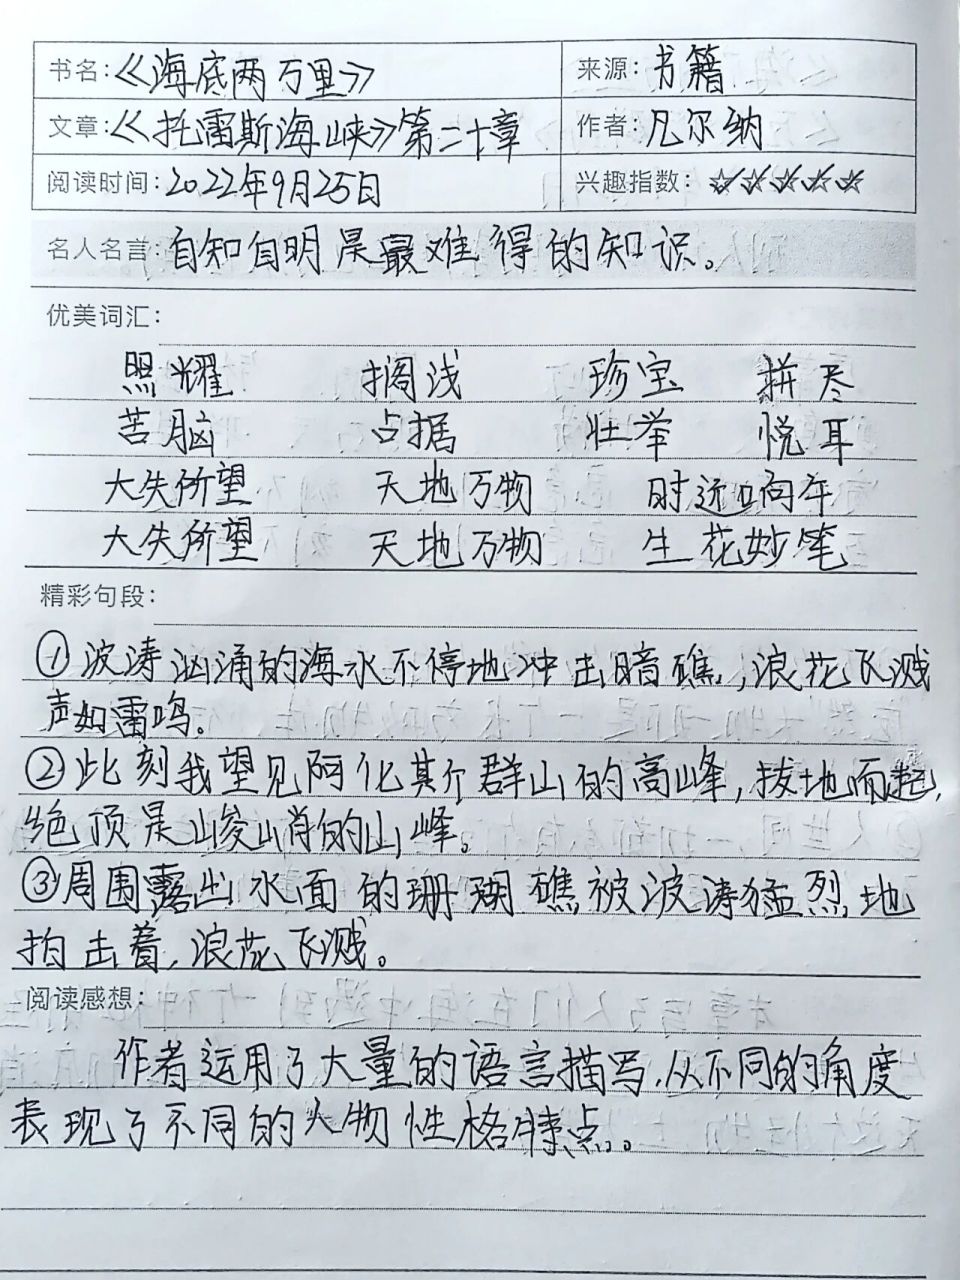 书名:《海底两万里》 来源:书籍
文章:《托雷斯海峡》第二十章 作者:凡尔纳
阅读时间:2022年9月25日 兴趣指数:☆☆☆☆☆
名人名言:自知自明是最难得的知识。
优美词汇:
照耀 搁浅 珍宝 拼尽
苦脑 占据 壮举 悦耳
大失所望 天地万物 时近晌午
大失所望 天地万物 生花妙笔
精彩句段:
①波涛汹涌的海水不停地冲击暗礁,浪花飞溅
声如雷鸣。
②此刻我望见阿化其介群山的高峰,拔地而起,
绝顶是峻峭的山峰。
③周围露出水面的珊瑚礁被波涛猛烈地
拍击着,浪花飞溅。
阅读感想:
作者运用了大量的语言描写,从不同的角度
表现了不同的人物性格特点。